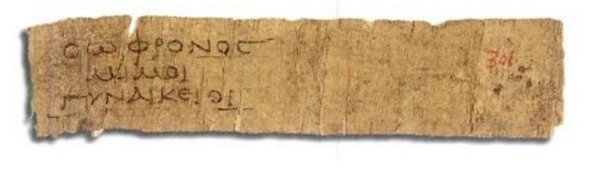 ϹⲰΦΡΟΝΟϹ
ΜΙΜΟΙ
ΓΥΝΑΙΚΕΙΟΙ
301